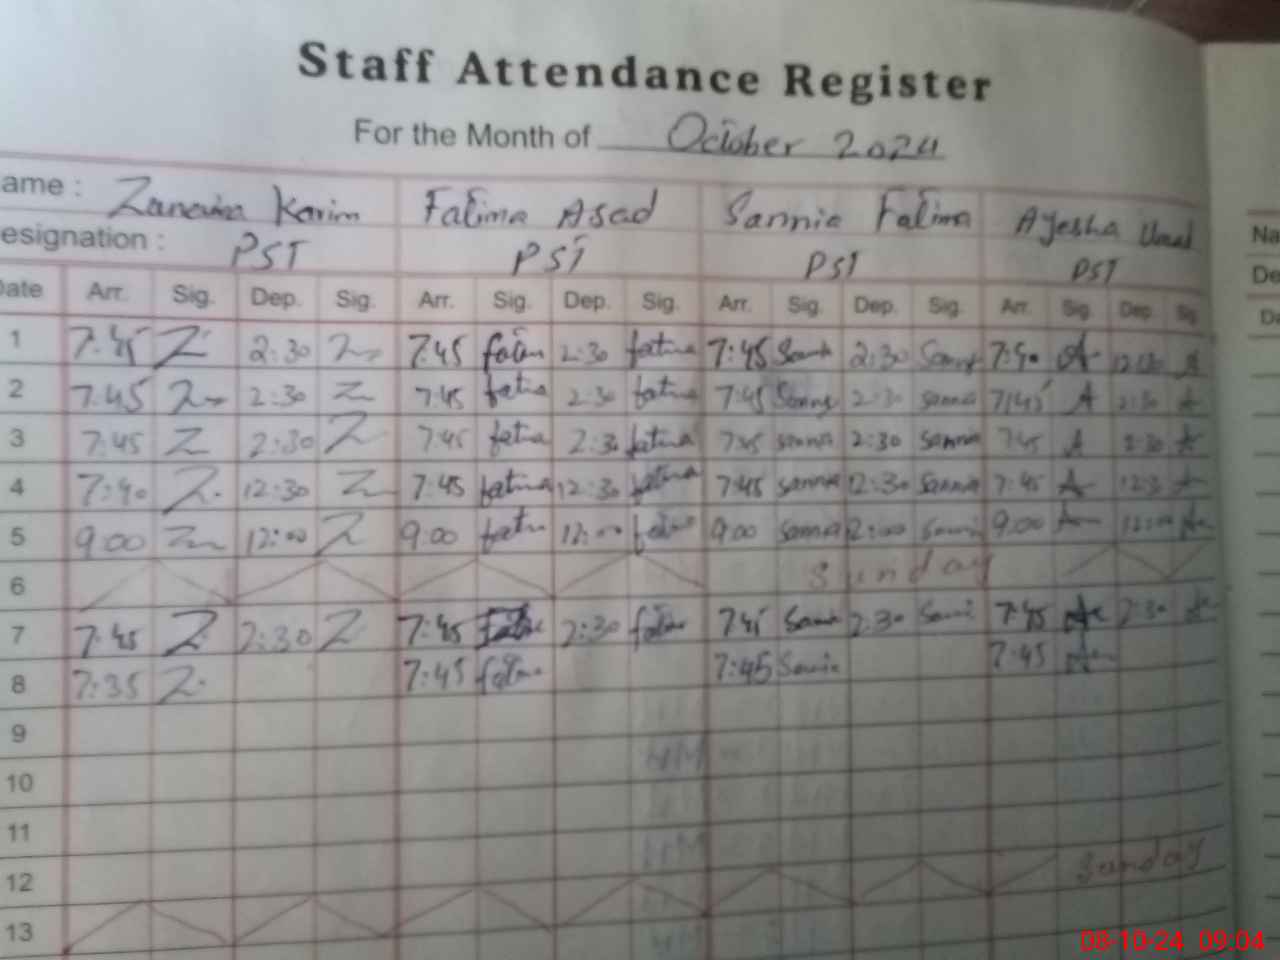 Staff Attendance Register
For the Month of October 2024
ame : Karim Fatima Asad Sannia Fatima Ayesha
esignation : PST PST PST PST Na
De
Date Arr. Sig. Dep. Sig. Arr. Sig. Dep. Sig. Arr. Sig. Dep. Sig. Arr. Sig. Dep. Sig. Da
1 7:45 Z 2:30 Z 7:45 2:30 fatima 7:45 2:30 7:40 A A
2 7:45 Z 2:30 Z 7:45 fatima 2:30 fatima 7:45 2:30 sannia 7:45 A 2:30 A
3 7:45 Z 2:30 Z 7:45 fatima 2:30 fatima 7:45 sannia 2:30 sannia 7:45 A 2:30 A
4 7:40 Z 12:30 Z 7:45 fatima 12:30 fatima 7:45 sannia 12:30 sannia 7:45 A 12:30 A
5 9:00 Z 12:00 Z 9:00 fatima 12:00 9:00 sannia 12:00 9:00 A 12:00 A
6 Sunday
7 7:45 Z 2:30 Z 7:45 2:30 7:45 2:30 7:45 A 2:30 A
8 7:35 Z 7:45 7:45 7:45 A
9
10
11
12 Sunday
13
08-10-24 09:04